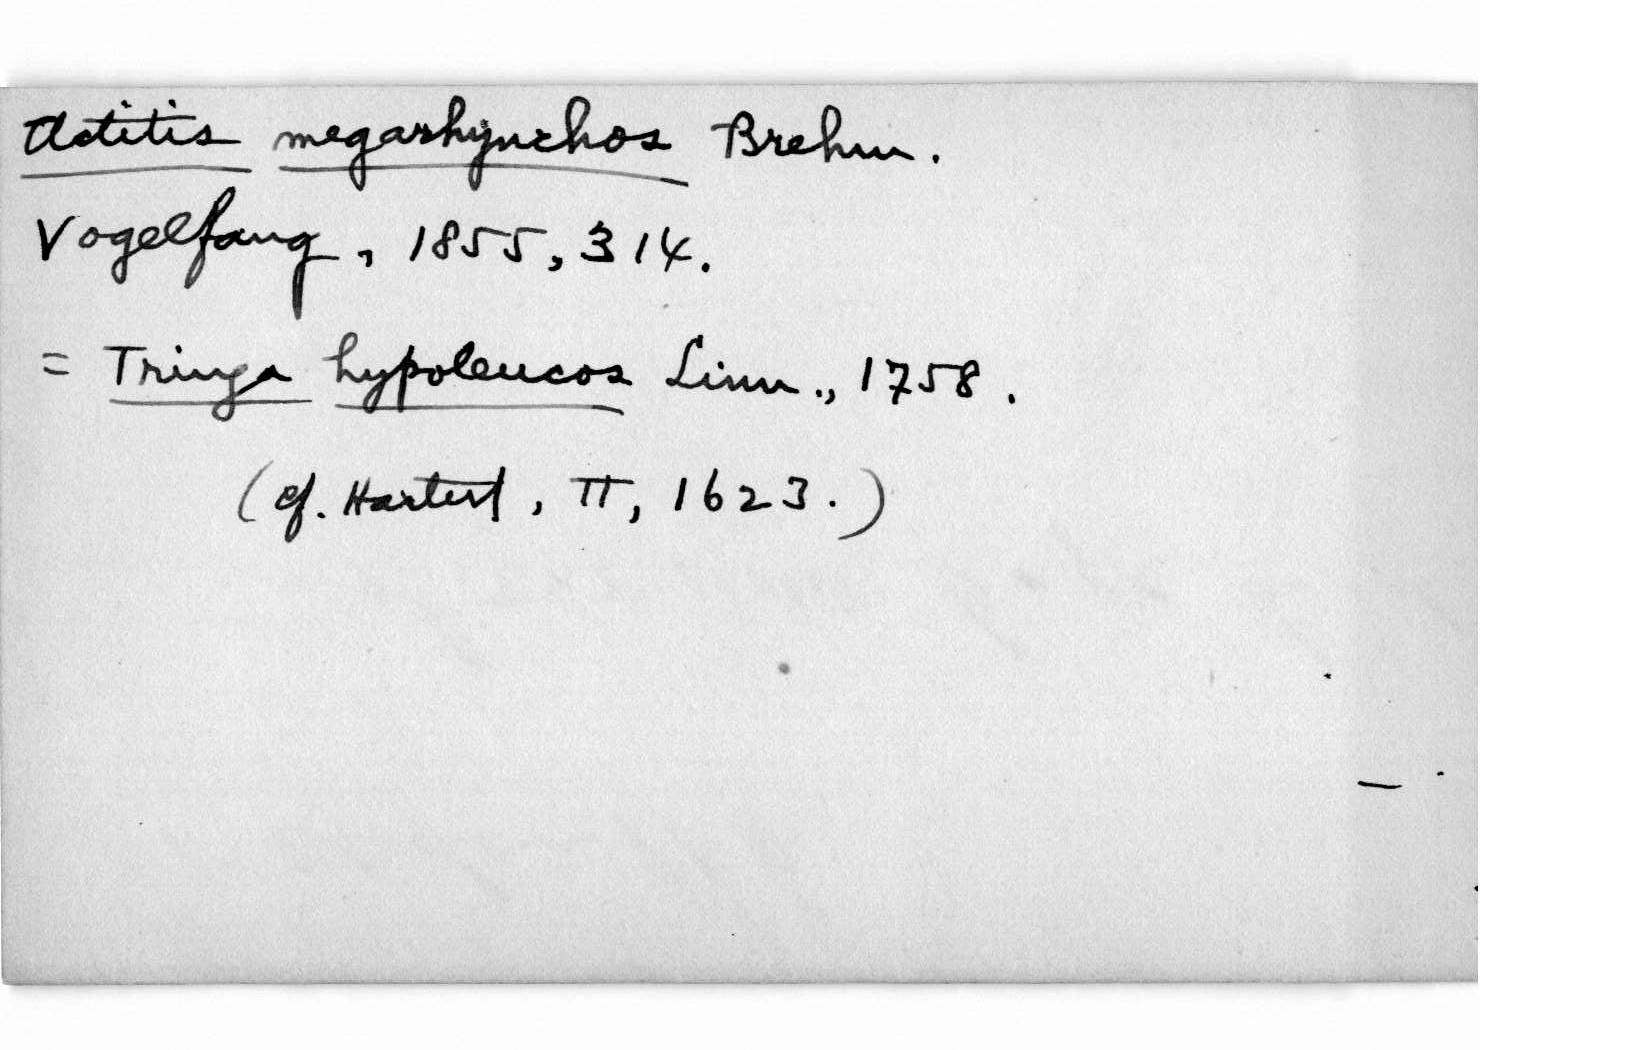 Actitis megarhynchos Brehm.
Vogelfang, 1855, 314.
= Tringa hypoleucos Linn., 1758.
(cf. Hartert, II, 1623.)